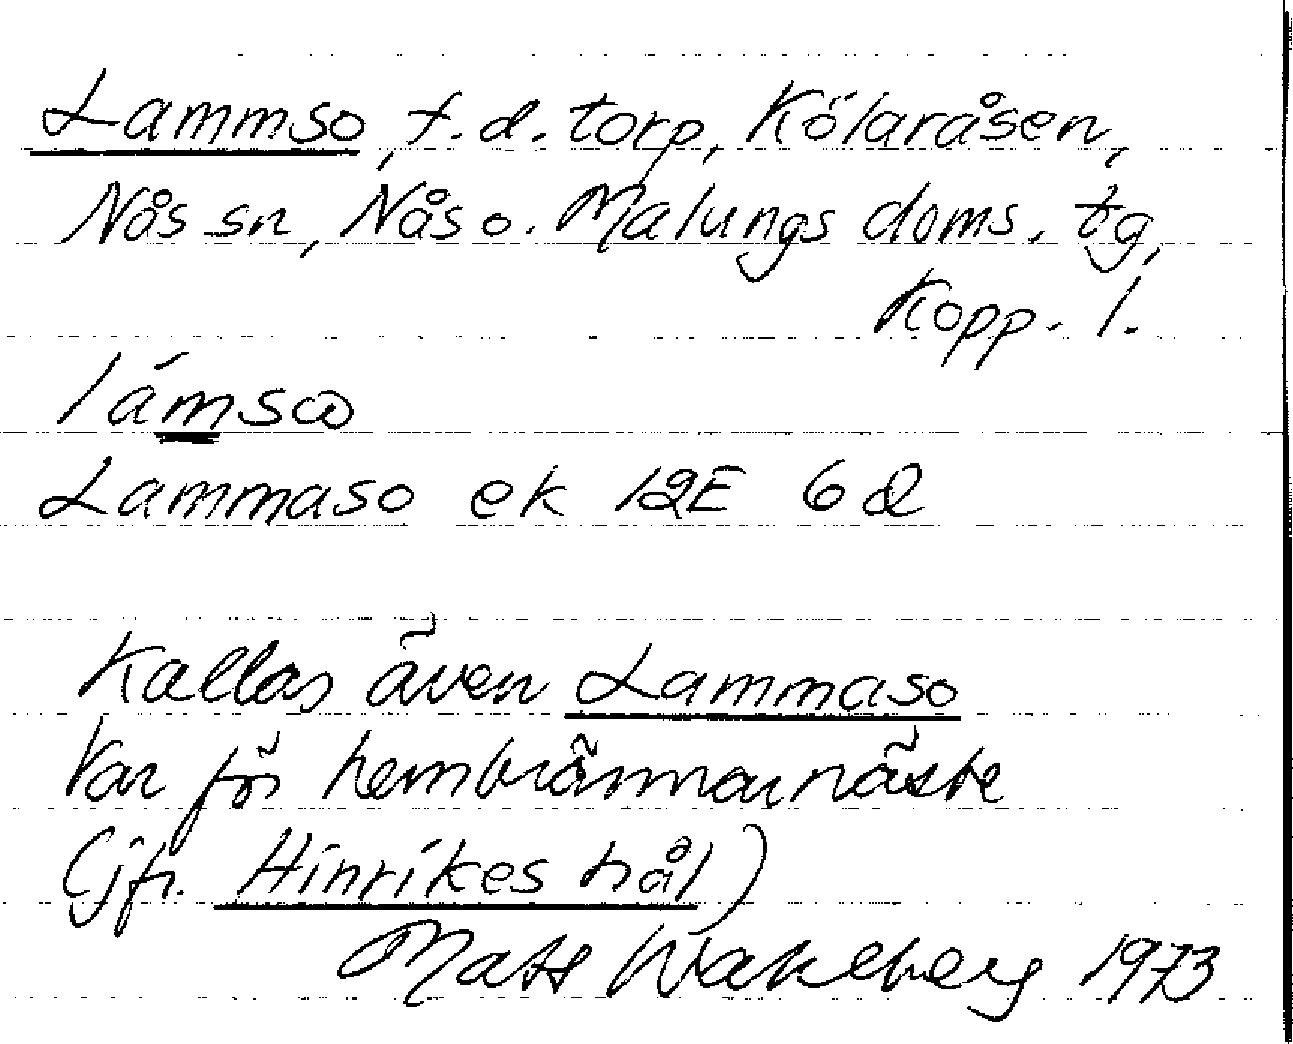 Lammso, f.d. torp, Kölaråsen,
Nås sn, Nås o. Malungs doms. tg,
Kopp. l.
lámsω
Lammaso ek 12E 6d
Kallas även Lammaso
Var för hembrännarnäste
(jfr. Hinrikes hål)
Mats Wahlberg 1973